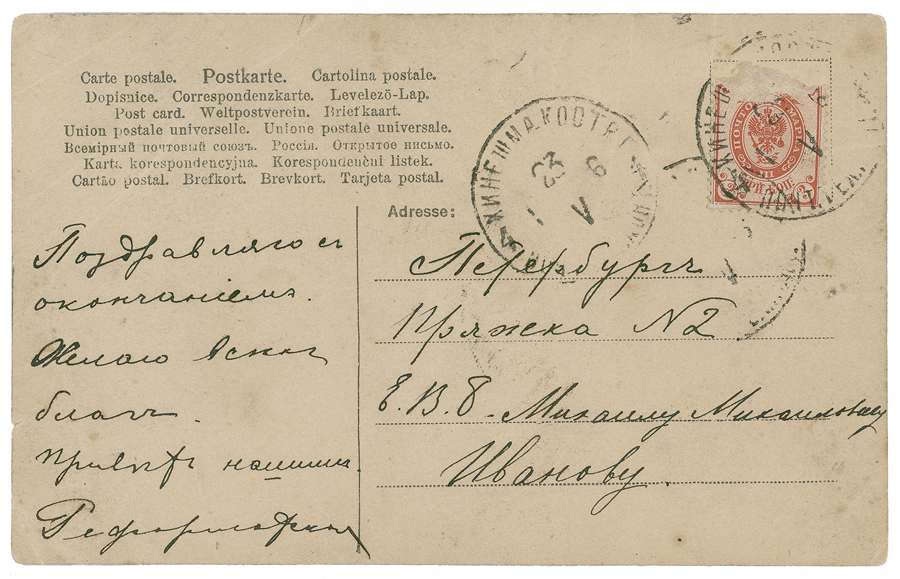 Carte postale. Postkarte. Cartolina postale.
Dopisnice. Correspondenzkarte. Levelező-Lap.
Post card. Weltpostverein. Briefkaart.
Union postale universelle. Unione postale universale.
Всемірный почтовый союзъ. Россія. Открытое письмо.
Karta korespondencyjna. Korespondenční listek.
Cartão postal. Brefkort. Brevkort. Tarjeta postal.
Adresse:
КИНЕШМА КОСТР. Г.
23 6
V
Поздравляю съ
окончаніемъ.
Желаю всякихъ
благъ.
Привѣтъ нашимъ.
Реформатскій
Петербургъ
Пряжка N2
Е.В.Б. Михаилу Михаиловичу
Иванову.